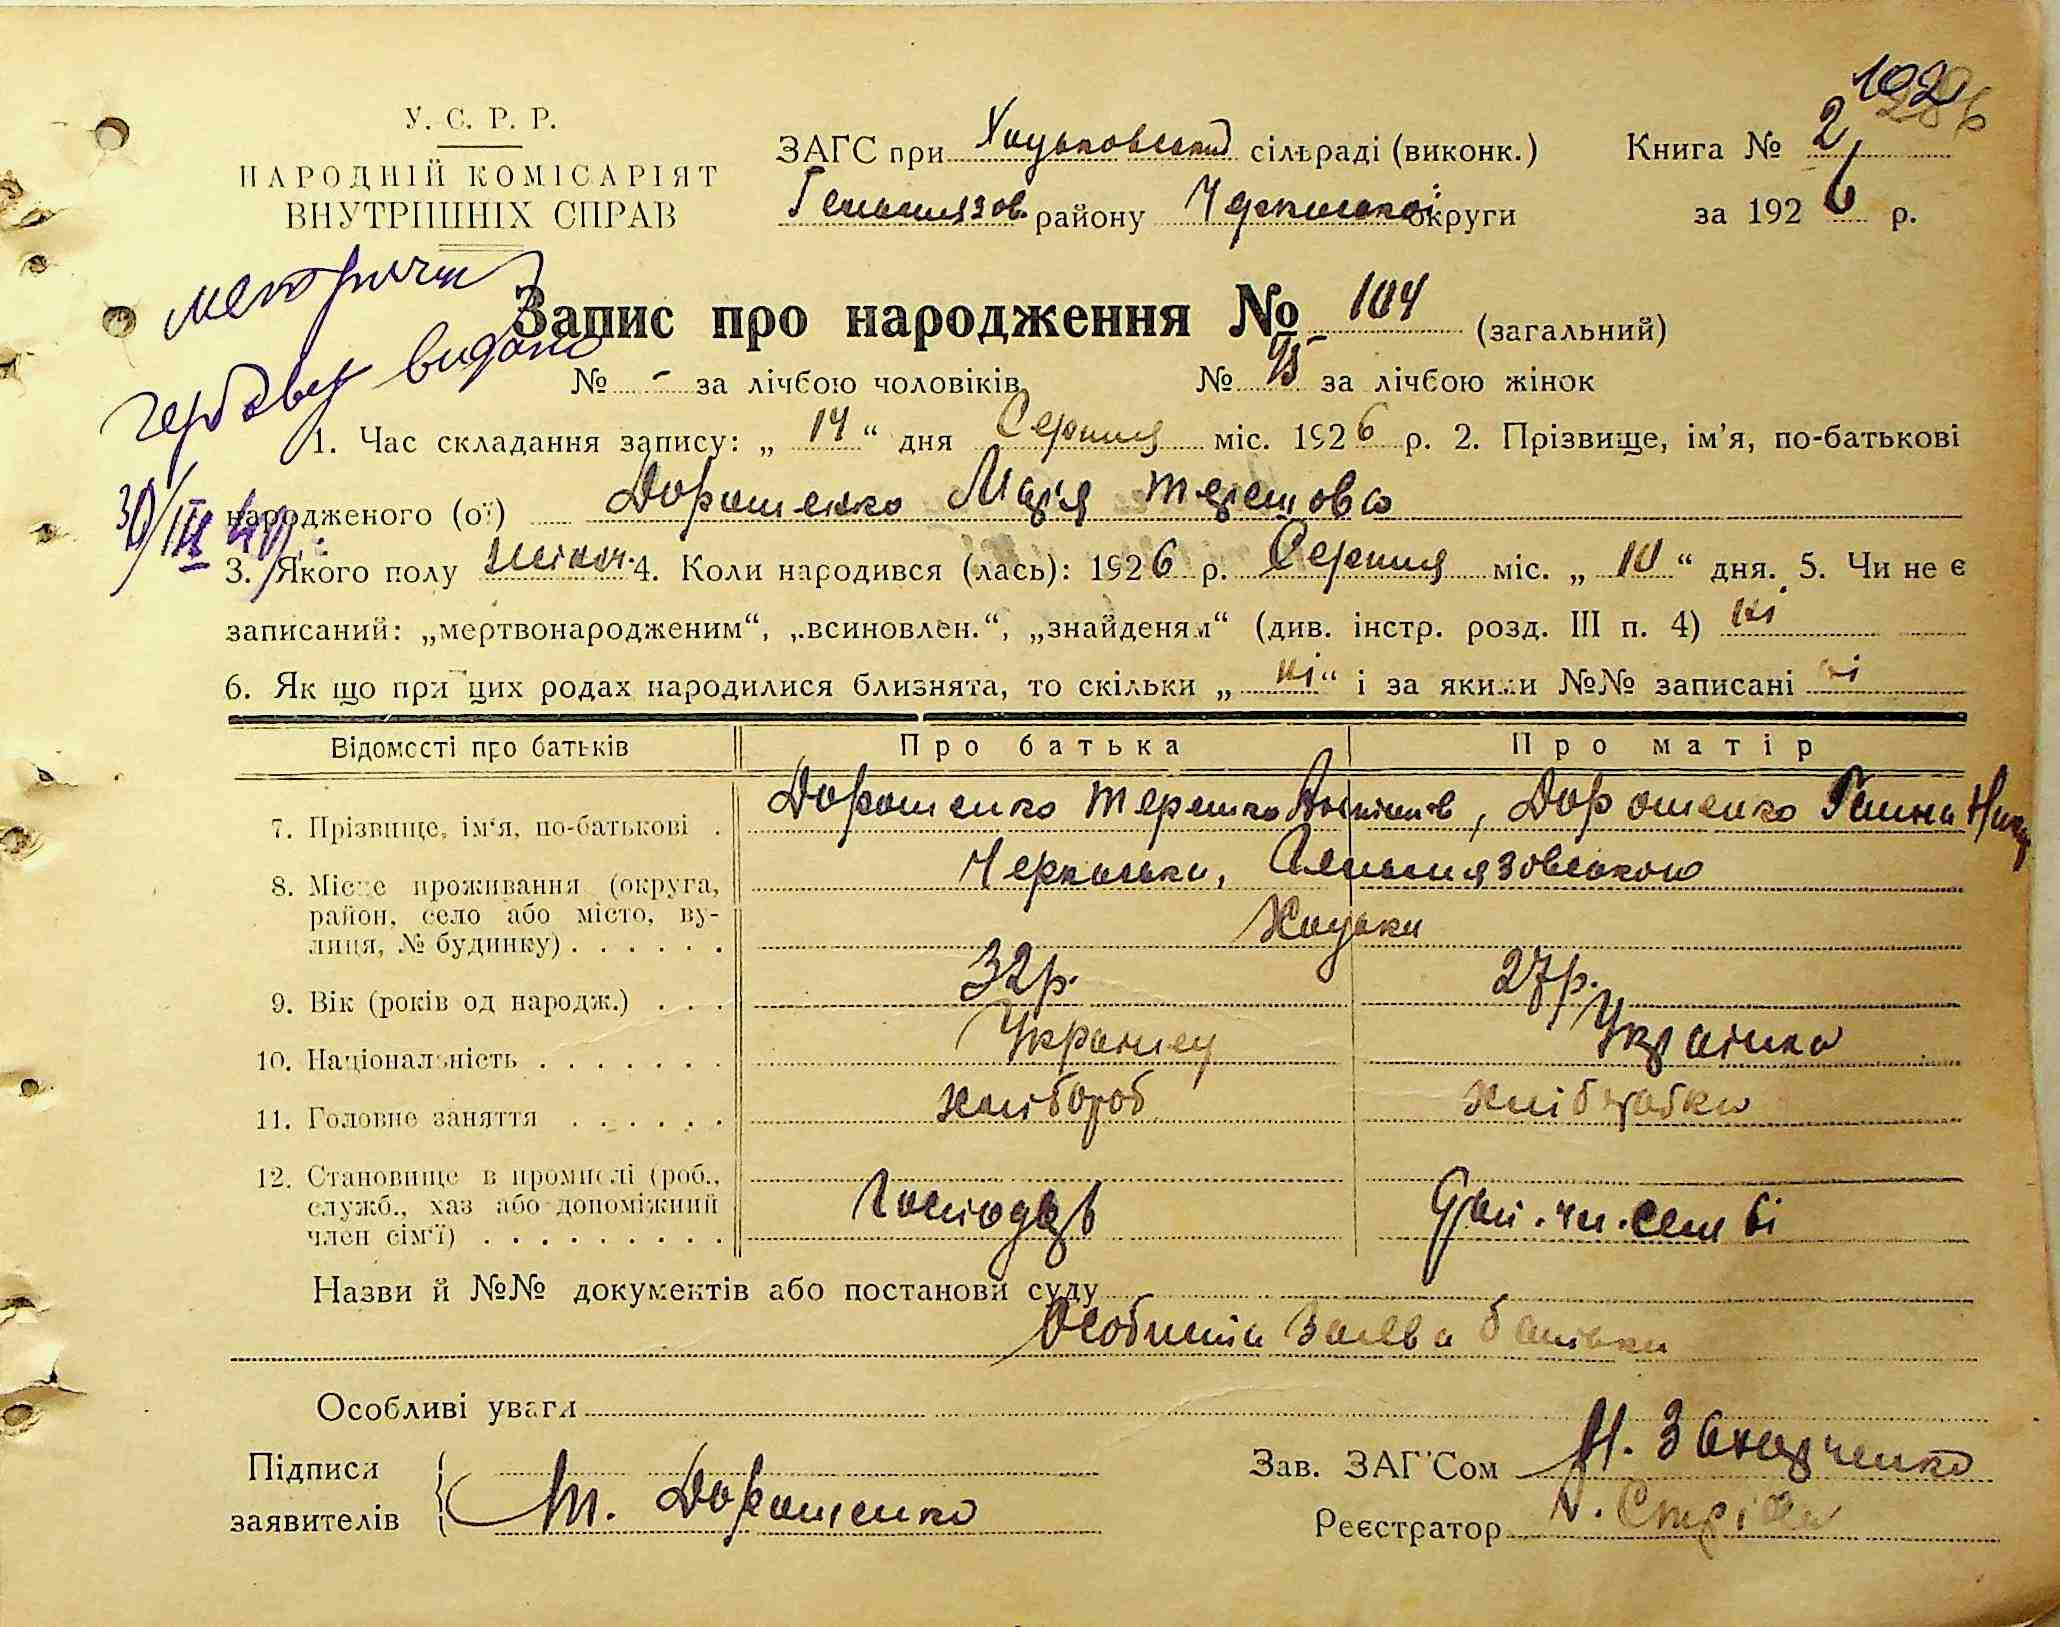 102
286
У. С. Р. Р.
НАРОДНІЙ КОМІСАРІЯТ
ВНУТРІШНІХ СПРАВ
ЗАГС при Хоцьковській сільраді (виконк.)
Гельмязов. району Черкаської округи
Книга № 2
за 1926 р.
метрику
гербову видано
30/III 40р.
Запис про народження № 104 (загальний)
№ - за лічбою чоловіків № за лічбою жінок
1. Час складання запису: „ 14 “ дня Серпня міс. 1926 р. 2. Прізвище, ім'я, по-батькові
народженого (ої) Дорошенко Марія Терешова
3. Якого полу жіноч. 4. Коли народився (лась): 1926 р. Серпня міс. „ 10 “ дня. 5. Чи не є
записаний: „мертвонародженим“, „всиновлен.“, „знайденям“ (див. інстр. розд. III п. 4) ні
6. Як що при цих родах народилися близнята, то скільки „ ні “ і за якими №№ записані ні
Відомості про батьків Про батька Про матір
7. Прізвище, ім'я, по-батькові . Дорошенко Терешко , Дорошенко Ганна
8. Місце проживання (округа, район, село або місто, вулиця, № будинку) . . . . . . Черкаська, Гельмязовського
Хоцьки
9. Вік (років од народж.) . . . 32р. 27р.
10. Національність . . . . . . . Українец Українка
11. Головне заняття . . . . . . хлібороб хліборобка
12. Становище в промислі (роб., служб., хаз або допоміжний член сім'ї) . . . . . . . . . Господар чл. семьі
Назви й №№ документів або постанови суду
Особиста Заява батька
Особливі уваги
Підписи
заявителів Т. Дорошенко
Зав. ЗАГ'Сом
Реєстратор